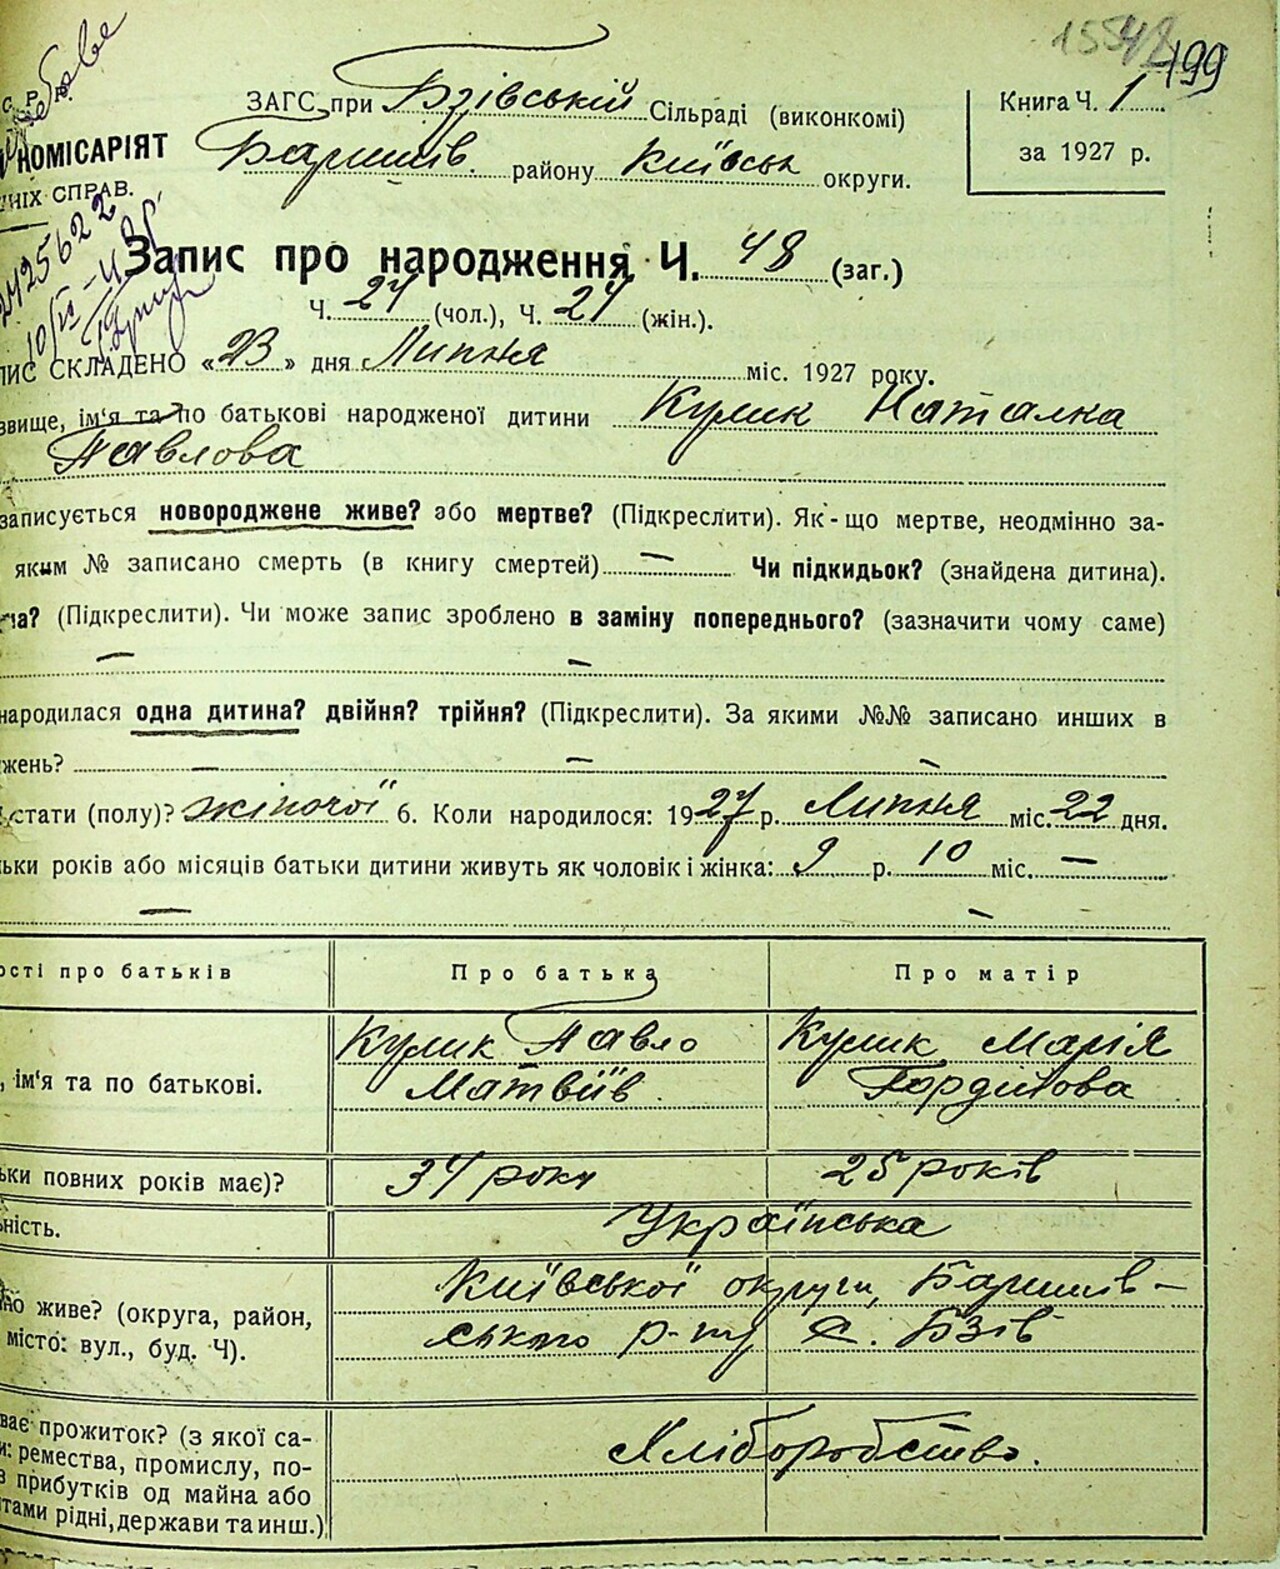 15542 199
С. Р. Р.
ЗАГС при Бзівській Сільраді (виконкомі)
Книга Ч. 1
НОМІСАРІЯТ
Баришів. району Київськ округи.
за 1927 р.
НІХ СПРАВ.
Запис про народження Ч. 48 (заг.)
Ч. 24 (чол.), Ч. 24 (жін.).
ПИС СКЛАДЕНО «23» дня Липня міс. 1927 року.
звище, ім'я та по батькові народженої дитини Кулик Наталка
Павлова
записується новороджене живе? або мертве? (Підкреслити). Як-що мертве, неодмінно за-
яким № записано смерть (в книгу смертей) — Чи підкидьок? (знайдена дитина).
на? (Підкреслити). Чи може запис зроблено в заміну попереднього? (зазначити чому саме)
— —
народилася одна дитина? двійня? трійня? (Підкреслити). За якими №№ записано инших в
жень? — — —
стати (полу)? жіночої 6. Коли народилося: 1927 р. Липня міс. 22 дня.
ьки років або місяців батьки дитини живуть як чоловік і жінка: 9 р. 10 міс. —
— —
ості про батьків Про батька Про матір
Кулик Павло Кулик Марія
, ім'я та по батькові. Матвіїв Гордійова
ьки повних років має)? 34 роки 25 років
ьність. Українська
Київської округи, Баришів-
но живе? (округа, район,
місто: вул., буд. Ч). ського р-ну с. Бзів
ває прожиток? (з якої са-
и: ремества, промислу, по- Хліборобство.
з прибутків од майна або
тами рідні, держави та инш.)